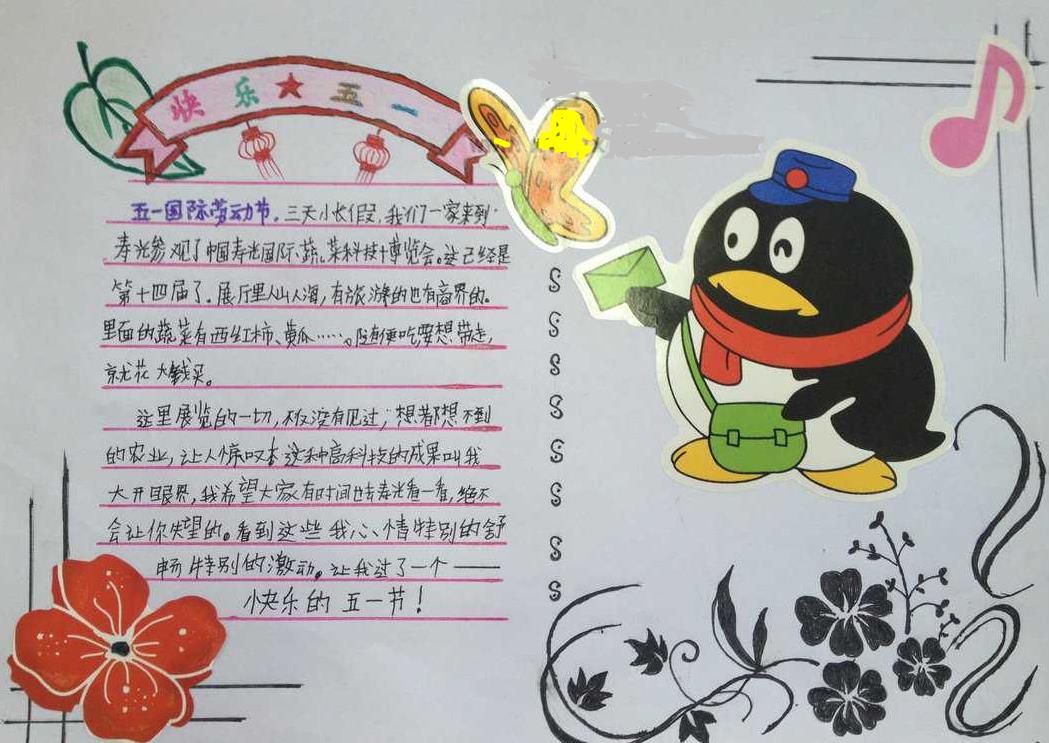 快乐★五一
五一国际劳动节，三天小长假，我们一家来到
寿光参观了中国寿光国际蔬菜科技博览会。这已经是
第十四届了。展厅里人山人海，有旅游的也有商界的。
里面的蔬菜有西红柿、黄瓜……。随便吃要想带走，
就花大钱买。
这里展览的一切，不仅没有见过，想都想不到
的农业，让人惊叹！这种高科技的成果叫我
大开眼界，我希望大家有时间也去寿光看一看，绝不
会让你失望的。看到这些我心情特别的舒
畅特别的激动。让我过了一个——
快乐的五一节！
S
S
S
S
S
S
S
S